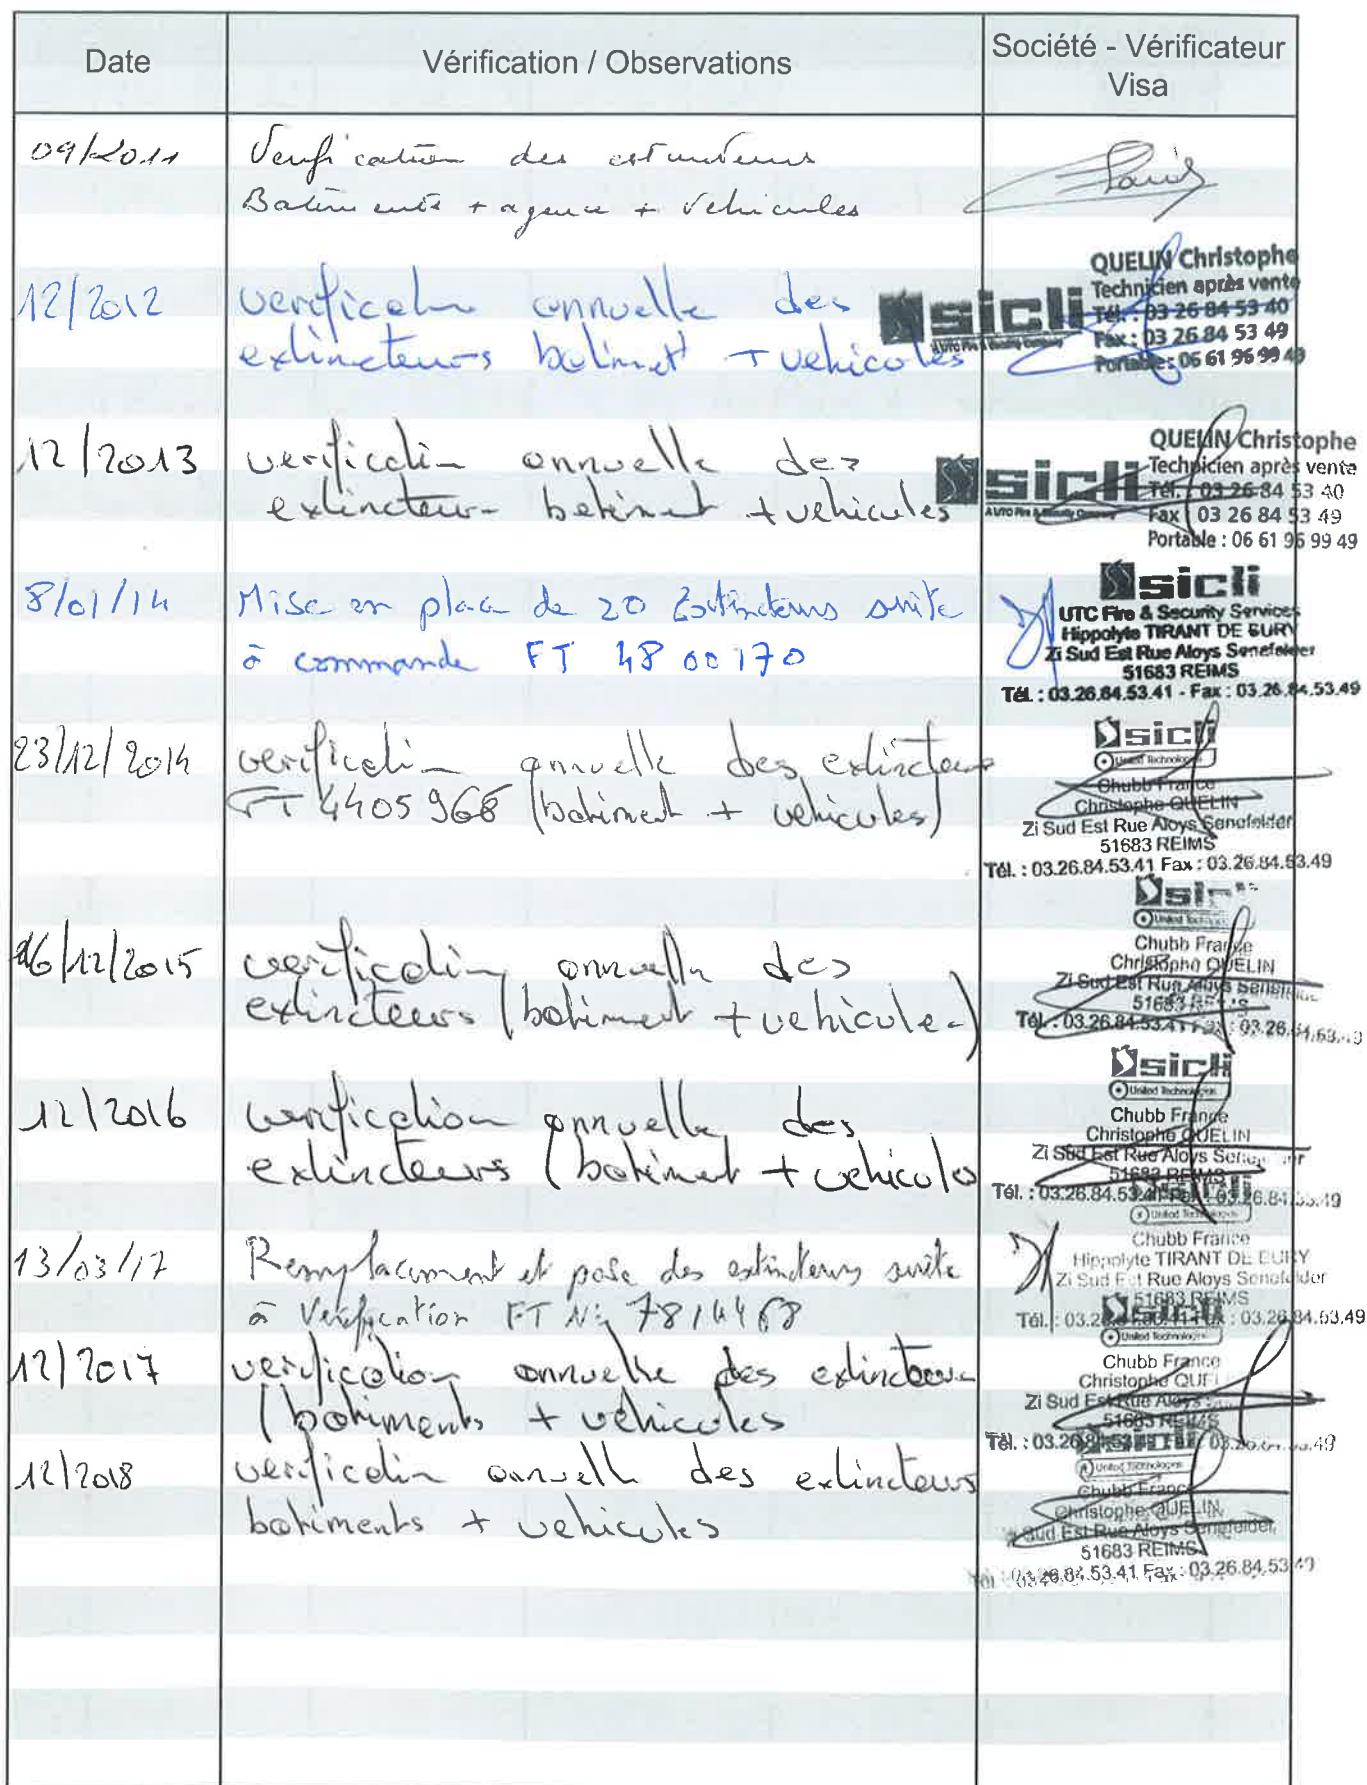 Date
Vérification / Observations
Société - Vérificateur
Visa
09/2011
Verification des extincteurs
Batiments + agence + Vehicules
12/2012
verification annuelle des
extincteurs batiment + vehicules
sicli
QUELIN Christophe
Technicien après vente
Tél. : 03 26 84 53 40
Fax : 03 26 84 53 49
Portable : 06 61 96 99 49
12/2013
verification annuelle des
extincteurs batiment + vehicules
sicli
QUELIN Christophe
Technicien après vente
Tél. : 03 26 84 53 40
Fax : 03 26 84 53 49
Portable : 06 61 96 99 49
8/01/14
Mise en place de 20 Extincteurs suite
à commande FT 4800170
sicli
UTC Fire & Security Services
Hippolyte TIRANT DE BURY
Zi Sud Est Rue Aloys Senefelder
51683 REIMS
Tél. : 03.26.84.53.41 - Fax : 03.26.84.53.49
23/12/2014
verification annuelle des extincteurs
FT 4405968 (batiment + vehicules)
sicli
United Technologies
Chubb France
Christophe QUELIN
Zi Sud Est Rue Aloys Senefelder
51683 REIMS
Tél. : 03.26.84.53.41 Fax : 03.26.84.53.49
16/12/2015
verification annuelle des
extincteurs (batiment + vehicules)
sicli
Chubb France
Christophe QUELIN
Zi Sud Est Rue Aloys Senefelder
51683 REIMS
Tél. : 03.26.84.53.41 Fax : 03.26.84.53.49
12/2016
verification annuelle des
extincteurs (batiment + vehicules
sicli
United Technologies
Chubb France
Christophe QUELIN
Zi Sud Est Rue Aloys Senefelder
51683 REIMS
Tél. : 03.26.84.53.41 Fax : 03.26.84.53.49
13/03/17
Remplacement et pose des extincteurs suite
à Vérification FT N° 7814468
Chubb France
Hippolyte TIRANT DE BURY
Zi Sud Est Rue Aloys Senefelder
51683 REIMS
Tél. : 03.26.84.53.41 Fax : 03.26.84.53.49
12/2017
verification annuelle des extincteurs
(batiments + vehicules
sicli
United Technologies
Chubb France
Christophe QUELIN
Zi Sud Est Rue Aloys
51683 REIMS
Tél. : 03.26.84.53.41 Fax : 03.26.84.53.49
12/2018
verification annuelle des extincteurs
batiments + vehicules
sicli
United Technologies
Chubb France
Christophe QUELIN
Zi Sud Est Rue Aloys Senefelder
51683 REIMS
Tél. : 03.26.84.53.41 Fax : 03.26.84.53.49